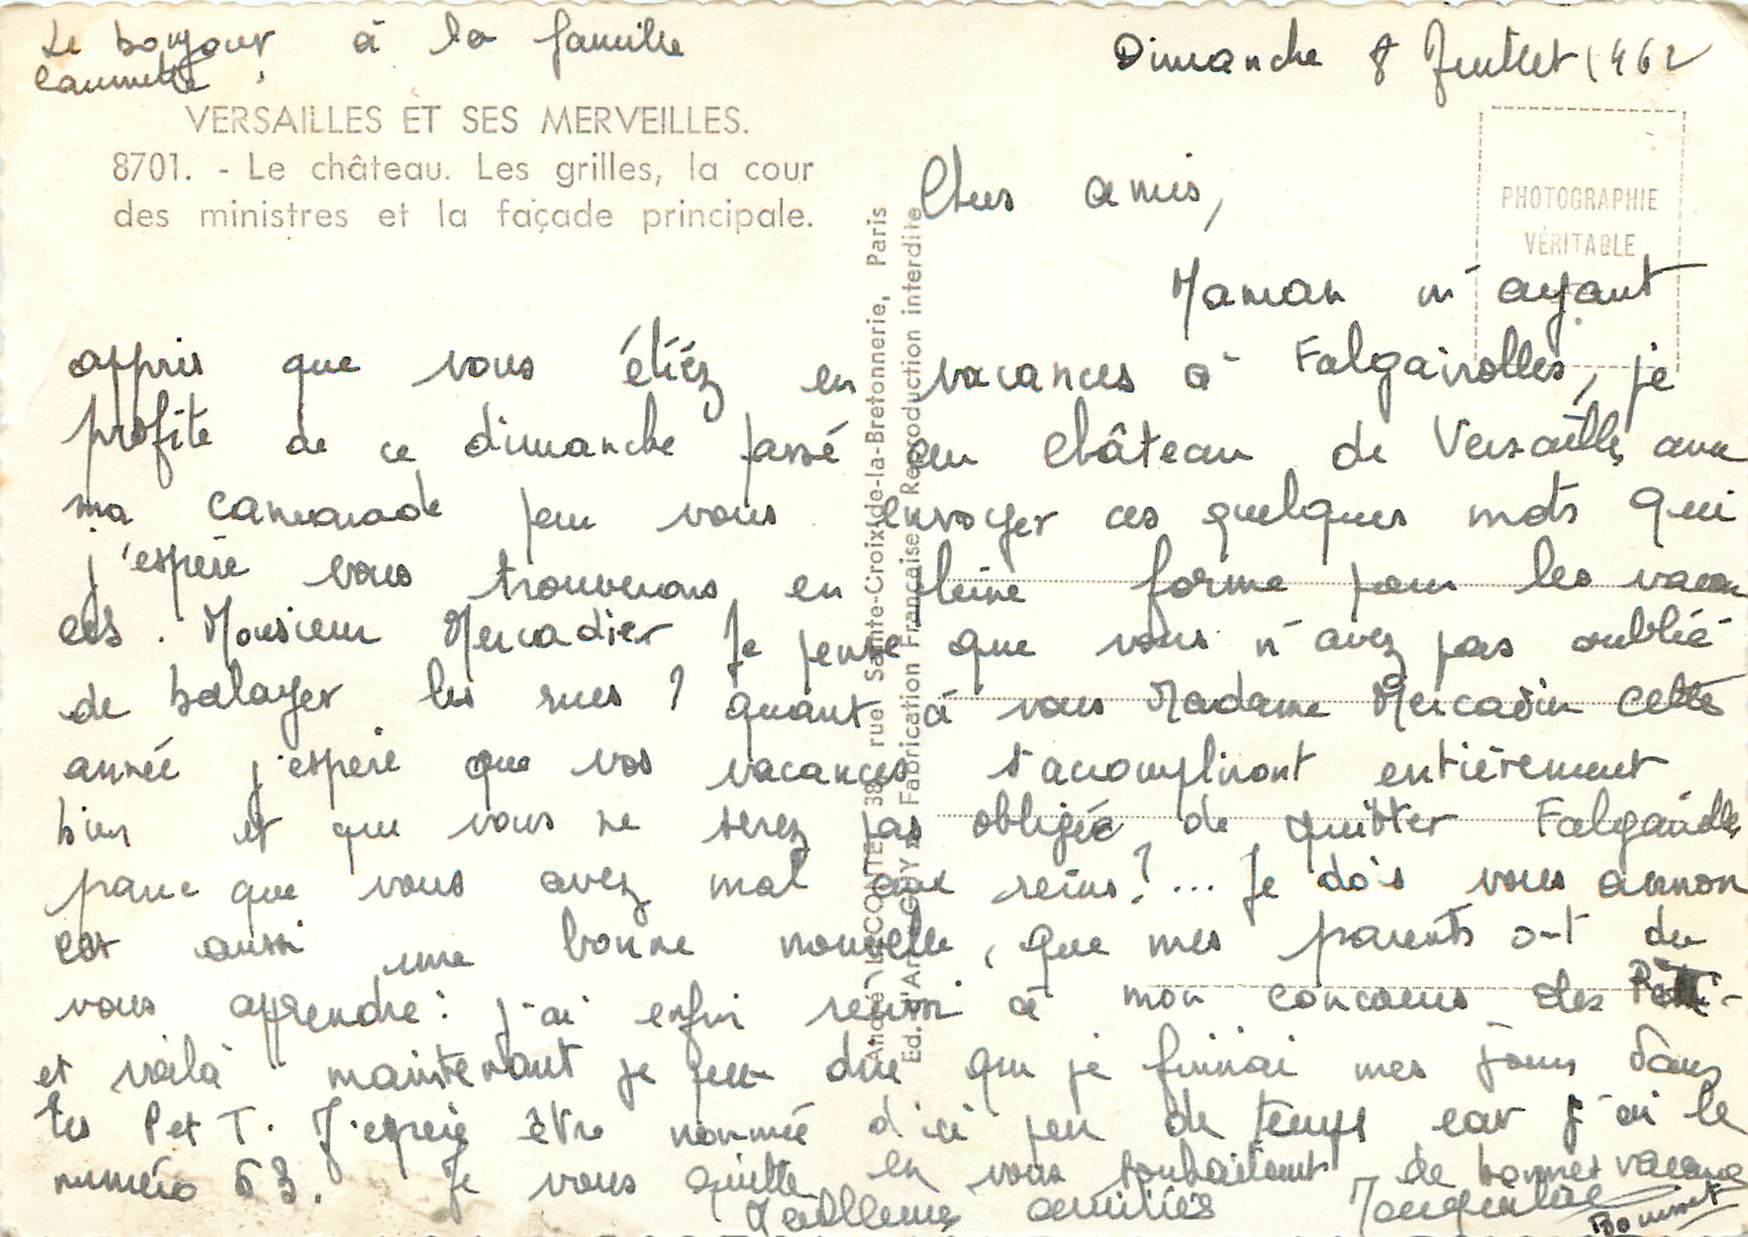 Le bonjour à la famille
Dimanche 8 Juillet 1962
VERSAILLES ET SES MERVEILLES.
8701. - Le château. Les grilles, la cour
des ministres et la façade principale.
PHOTOGRAPHIE
VÉRITABLE
André LECONTE, 38, rue Sainte-Croix-de-la-Bretonnerie, Paris
Ed. d'Art GUY Fabrication Française Reproduction interdite
Chers amis,
Maman m'ayant
appris que vous étiéz en vacances à Falgairolles, je
profite de ce dimanche passé au Château de Versailles avec
ma camarade pour vous envoyer ces quelques mots qui
j'espère vous trouverons en pleine forme pour les vacan
ces. Monsieur Mercadier Je pense que vous n'avez pas oublié
de balayer les rues ? quant à vous Madame Mercadier cette
année j'espère que vos vacances s'accompliront entièrement
bien et que vous ne serez pas obligée de quitter Falgairolles
parce que vous avez mal aux reins ! ... Je dois vous annon
cer aussi une bonne nouvelle, que mes parents ont du
vous apprendre : j'ai enfin réussi à mon concours des
et voilà maintenant je peux dire que je finirai mes jours dans
les P et T. J'espère être nommée d'ici peu de temps car j'ai le
numéro 63. Je vous quitte en vous souhaitant de bonnes vacances
Meilleures amitiés Jacqueline